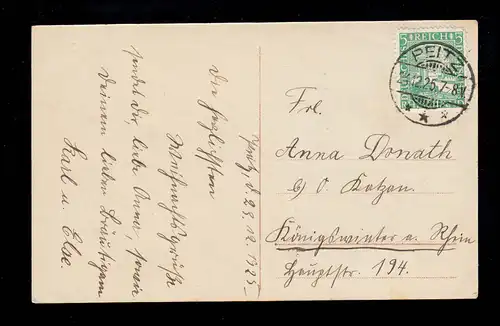 Peitz, d. 23.12.1925.
Die herzlichsten
Weihnachtsgrüße
sendet dir, liebe Anna, sowie
Deinem lieben Bräutigam
Karl u. Else.
5 REICH 5
PEITZ
12.25.7-8
Frl.
Anna Donath
b/ O. Katzan.
Königswinter a. Rhein
Hauptstr. 194.